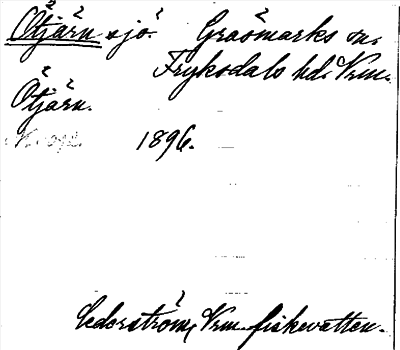 Ötjärn sjö. Gräsmarks sn.
Fryksdals hd. Vrm.
Ötjärn.
1896.
Cederström, Vrm. fiskevatten.